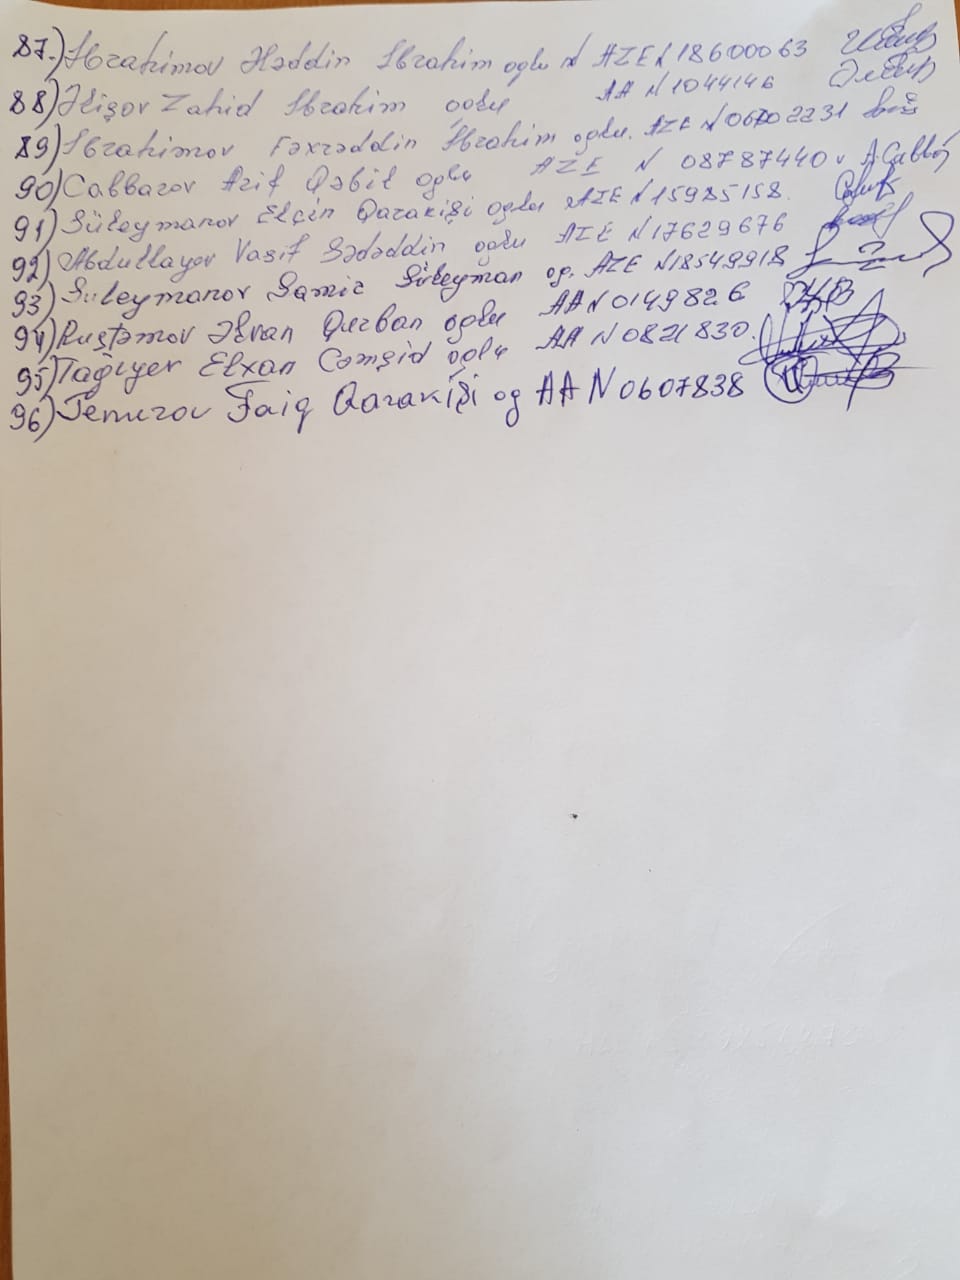 87.) Ibrahimov Həddin Ibrahim oglu N AZE N 18600063
88) Əlişov Zahid Ibrahim oglu AA N 1044146
89) Ibrahimov Fəxrəddin Ibrahim oglu. AZE N 06702231
90) Cabbarov Arif Qəbil oglu AZE N 08787440 A.Cabb
91) Süleymanov Elçin Qarakişi oglu AZE N 15985158.
92) Abdullayev Vasif Sədəddin oglu AZE N 17629676
93) Suleymanov Samir Süleyman og. AZE N 18549918
94) Rustəmov Əlvan Qurban oglu AA N 0149826
95) Tağıyev Elxan Cəmşid oglu AA N 0821830.
96) Temurov Faiq Qarakişi og AA N 0607838